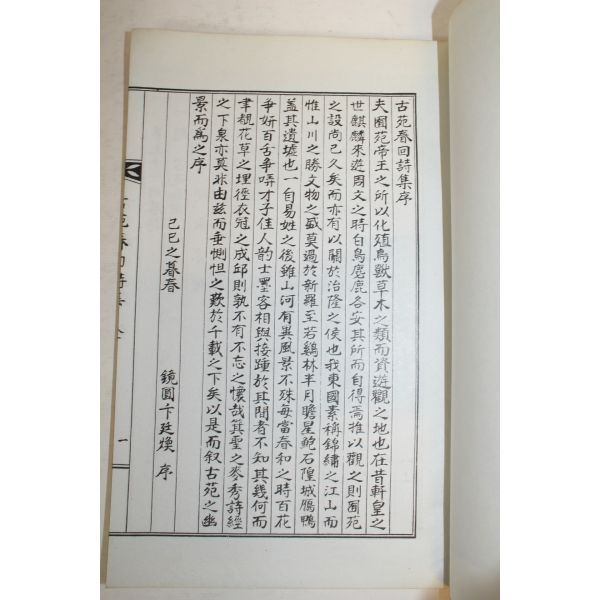 古苑春回詩集序
夫囿苑帝王之所以化殖鳥獸草木之類而資遊觀之地也在昔軒皇之
世麒麟來遊周文之時白鳥麀鹿各安其所而自得焉推以觀之則囿苑
之設尚已久矣而亦有以關於治隆之侯也我東國素稱錦繡之江山而
惟山川之勝文物之盛莫過於新羅至若鷄林半月瞻星鮑石隍城鴈鴨
盖其遺墟也一自易姓之後雖山河有異風景不殊每當春和之時百花
爭妍百舌爭哢才子佳人韵士墨客相與接踵於其間者不知其幾何而
聿覩花草之埋徑衣冠之成邱則孰不有不忘之懷哉箕聖之麥秀詩經
之下泉亦莫非由玆而垂惻怛之歎於千載之下矣以是而叙古苑之幽
景而爲之序
己巳之暮春
鏡圓卞廷煥 序
古苑春回詩集
一